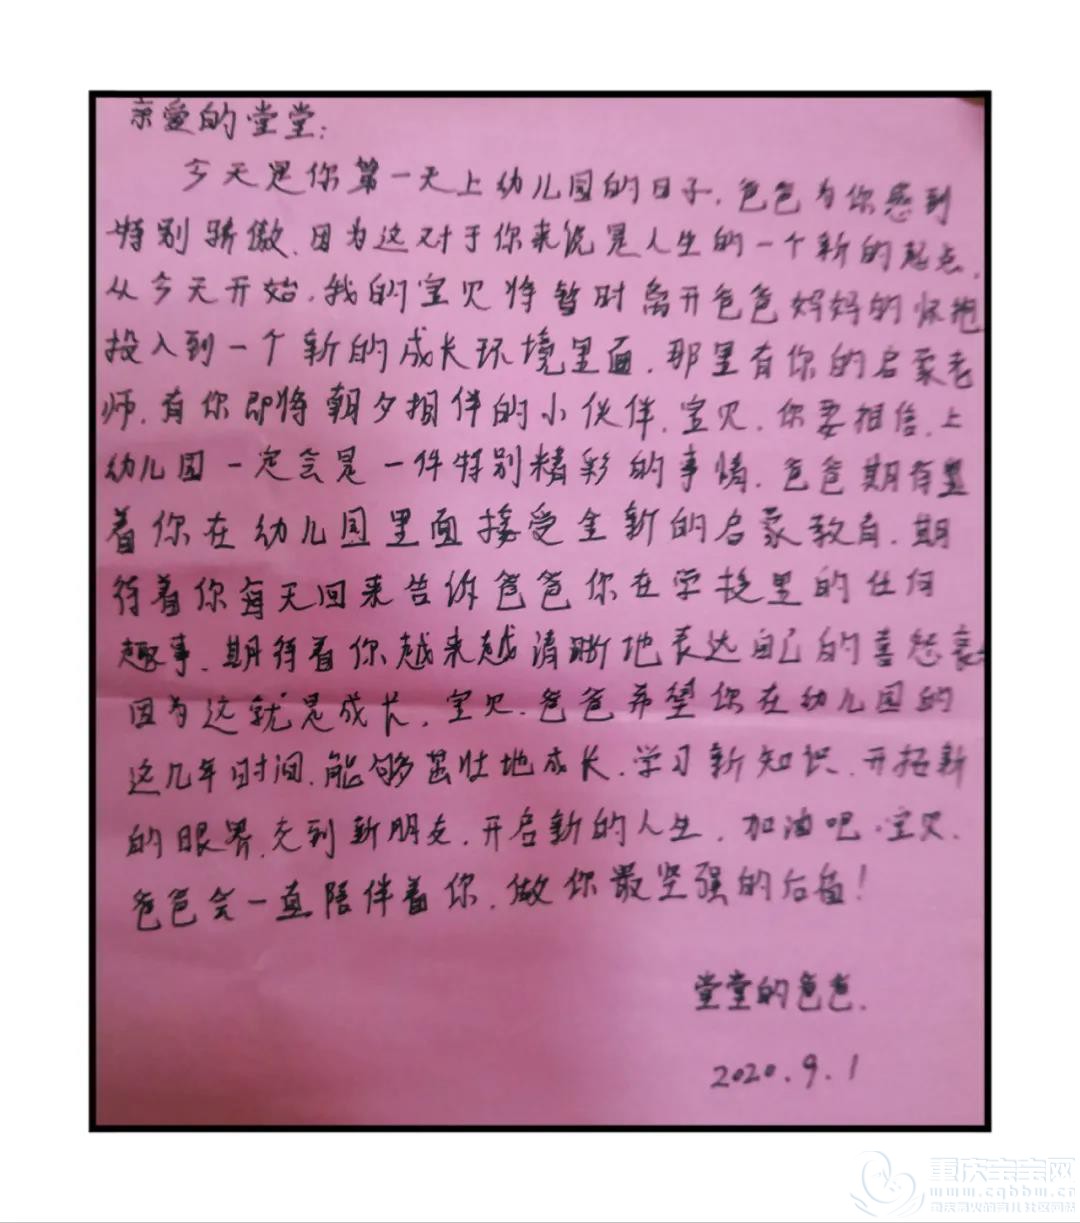 亲爱的堂堂:
今天是你第一天上幼儿园的日子,爸爸为你感到
特别骄傲,因为这对于你来说是人生的一个新的起点,
从今天开始,我的宝贝将暂时离开爸爸妈妈的怀抱
投入到一个新的成长环境里面,那里有你的启蒙老
师,有你即将朝夕相伴的小伙伴,宝贝,你要相信,上
幼儿园一定会是一件特别精彩的事情,爸爸期待
着你在幼儿园里面接受全新的启蒙教育,期
待着你每天回来告诉爸爸你在学校里的任何
趣事,期待着你越来越清晰地表达自己的喜怒哀
因为这就是成长,宝贝,爸爸希望你在幼儿园的
这几年时间,能够茁壮地成长,学习新知识,开拓新
的眼界,交到新朋友,开启新的人生,加油吧,宝贝,
爸爸会一直陪伴着你,做你最坚强的后盾!
堂堂的爸爸.
2020.9.1
重庆宝宝网
www.cqbbw.cn